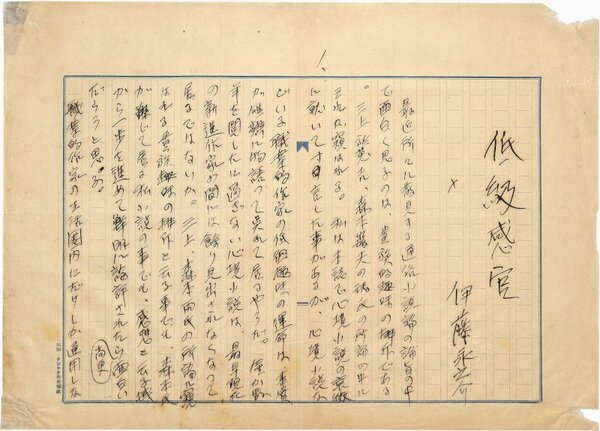 低級感官
伊藤永之介
最近所々に散見する通俗小説論の論旨の中
で面白く思ふのは、貴族的趣味の排斥である
。三上 森本巌夫の両氏の所論の中に
それが窺はれる。私は本誌で心境小説の
に就いて寸言した事があるが、心境小説な
どいふ職業的作家の低徊趣味の運命は、事実
が雄弁に物語って呉れて居るやうだ。僅か数
年を閲したに過ぎない心境小説は、最早現在
の新進作家の間には餘り見出されなくなって
居るではないか。三上 森本両氏の所論に現
はれる貴族趣味の排斥と云ふ事でも、森本氏
が難じて居る私小説の事でも、感想と云ふ域
から一歩を進めて鮮明に論評されたら尚更面白い
だらうと思ふ。
職業的作家の生活圏内にだけしか通用しな